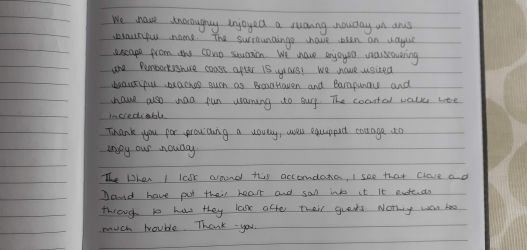 We have thoroughly enjoyed a relaxing holiday in this
beautiful home. The surroundings have been an
escape from the COVID situation. We have enjoyed rediscovering
the Pembrokeshire coast after 15 years! We have visited
beautiful beaches such as Broadhaven and Barafundle and
have also had fun learning to surf. The coastal walks were
incredible.
Thank you for providing a lovely, well equipped cottage to
enjoy our holiday.
The When I look around this accomodation, I see that Clare and
David have put their heart and soul into it. It extends
through to how they look after their guests. Nothing was too
much trouble. Thank-you.